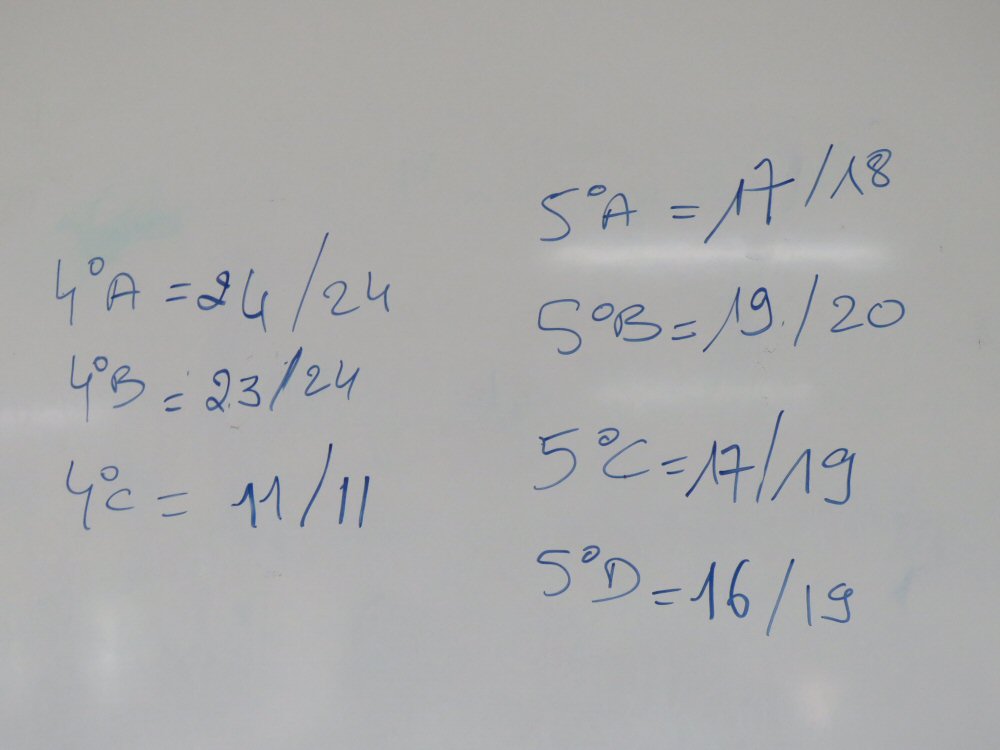 4°A = 24/24
4°B = 23/24
4°C = 11/11
5°A = 17/18
5°B = 19/20
5°C = 17/19
5°D = 16/19